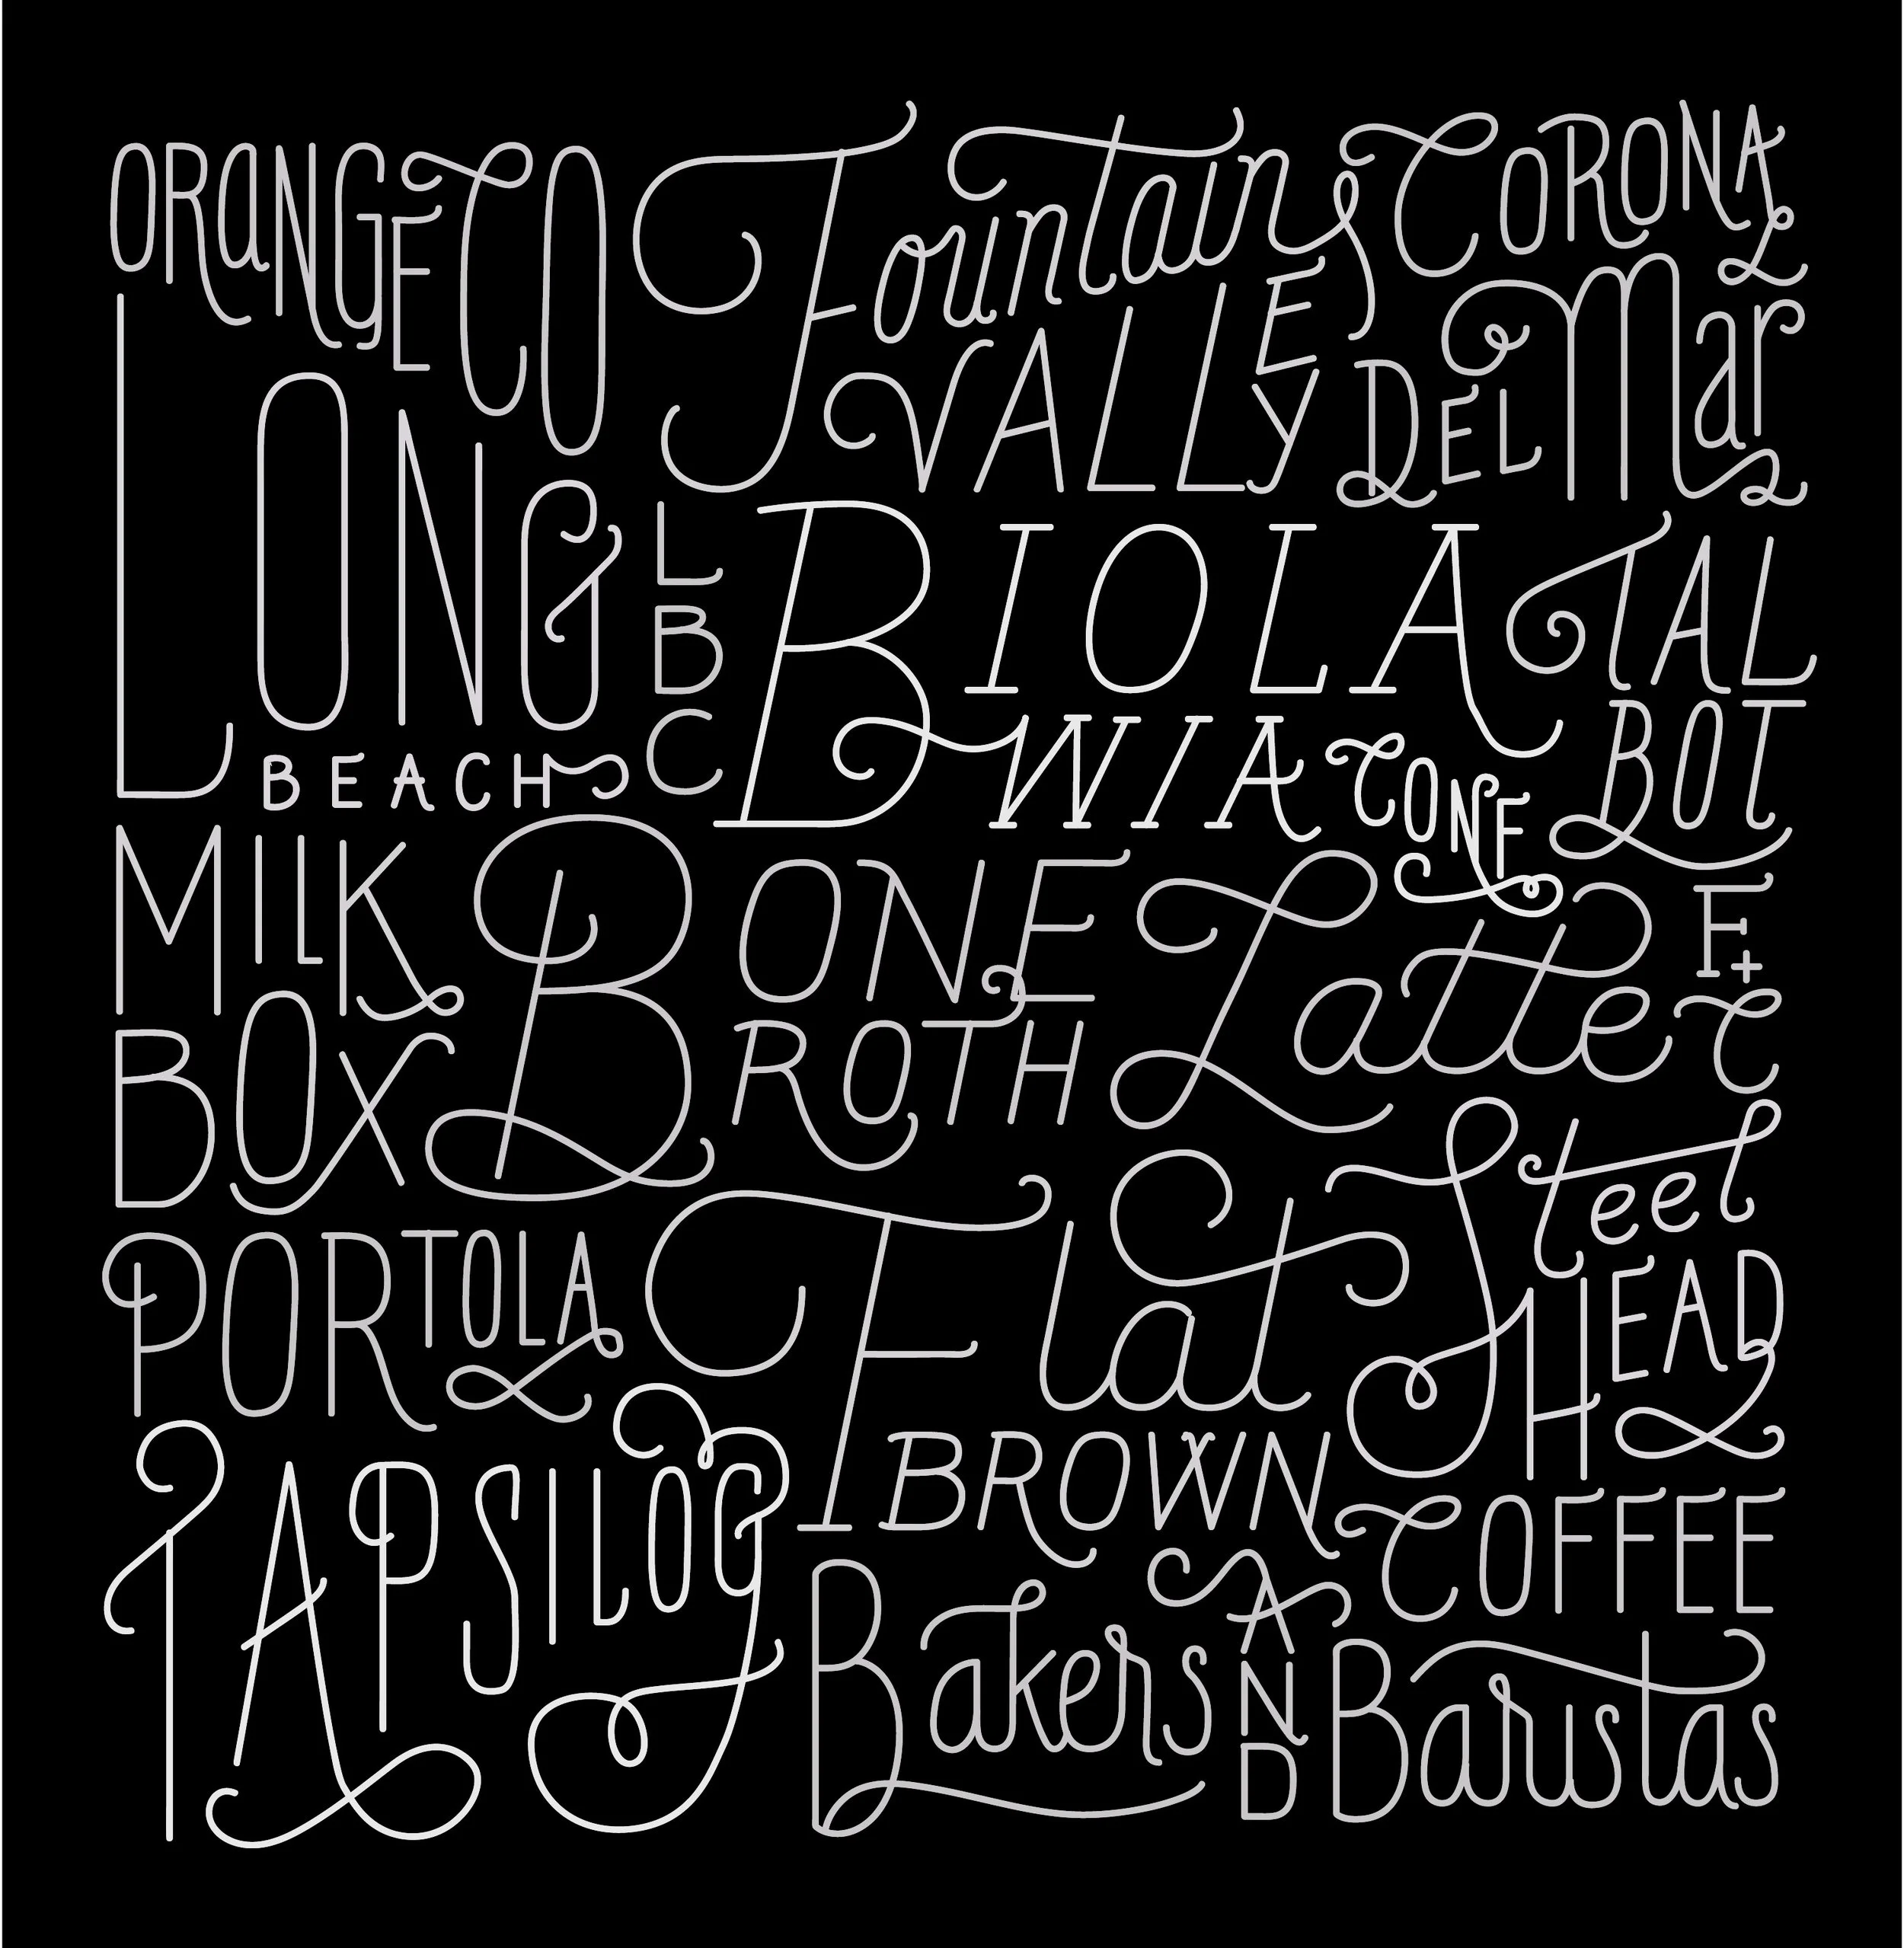 ORANGE CO
Fountain
VALLEY
CORONA
DEL Mar
LONG
BEACH
LBC
BIOLA
WIIA CONF
TAL
BOT
MILK
BOX
BONE
BROTH
Latte
F+C
PORTOLA
Flat
Steel
HEAD
TAPSILOG
BROWN COFFEE
Bakers AND Baristas